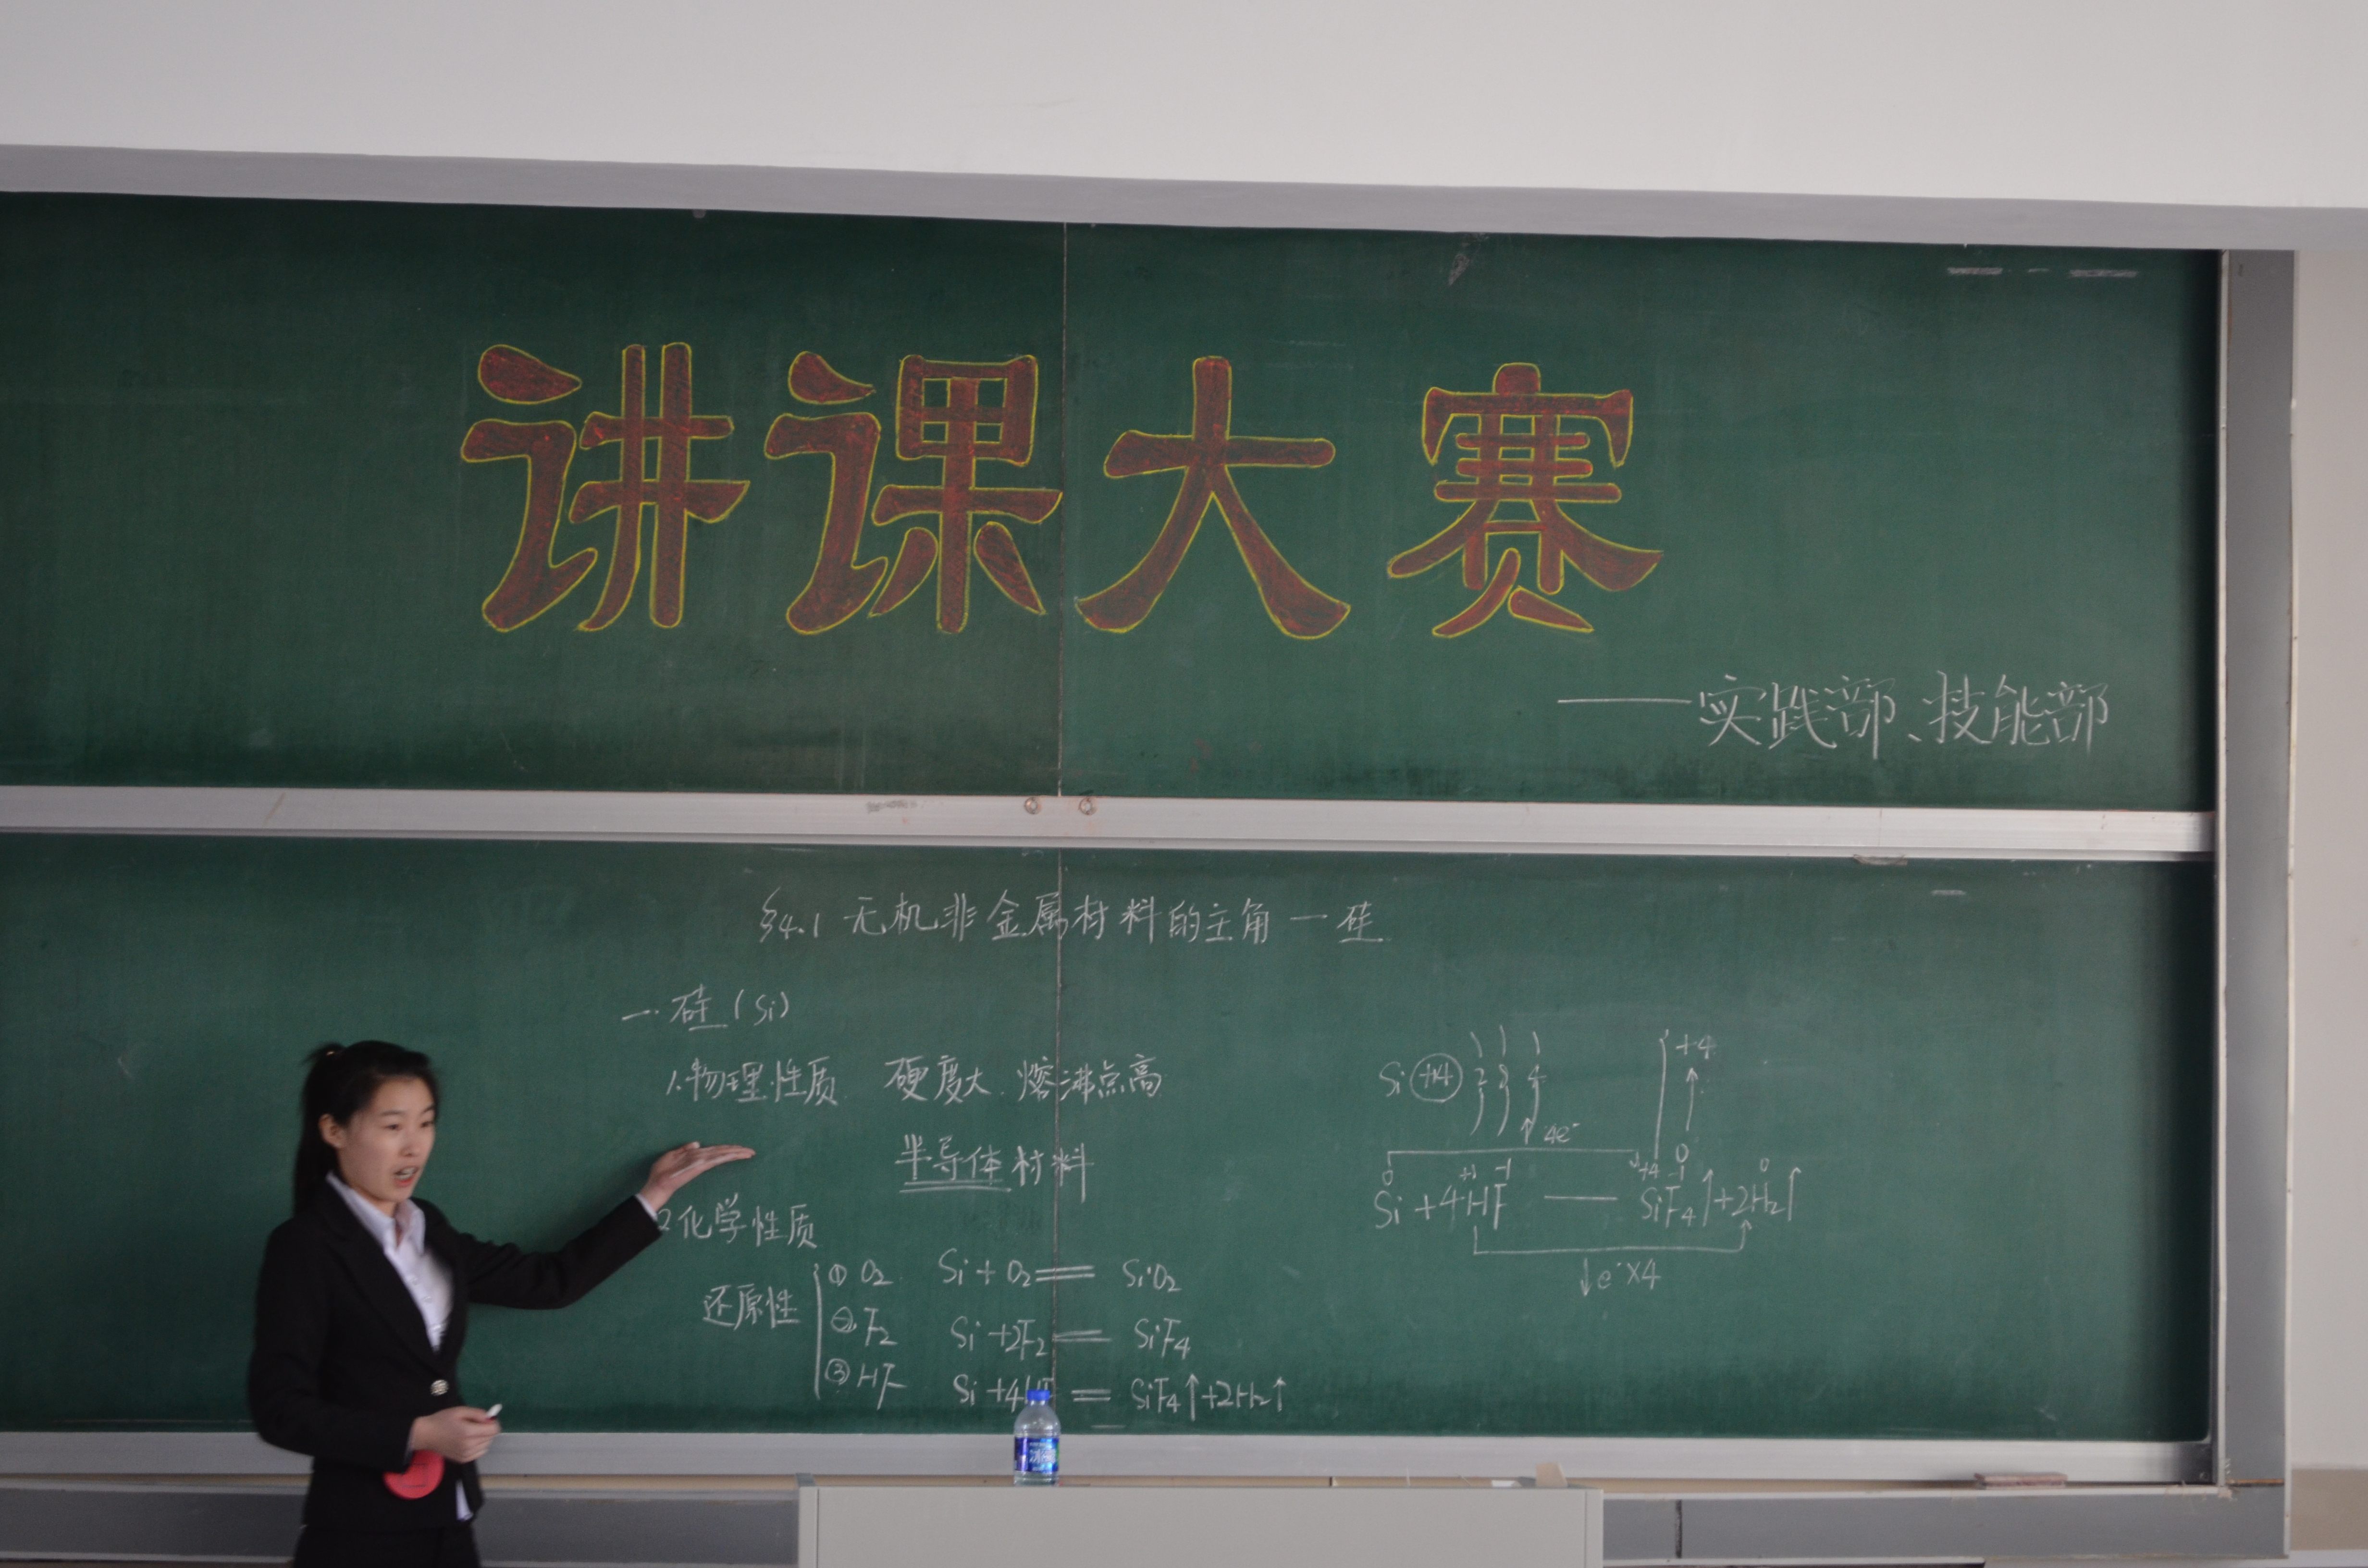 讲课大赛
——实践部、技能部
§4.1 无机非金属材料的主角一硅
一. 硅 (Si)
1.物理性质 硬度大.熔沸点高
半导体材料
2化学性质
还原性
① O₂ Si + O₂ == SiO₂
② F₂ Si +2F₂ == SiF₄
③ HF Si +4HF == SiF₄↑+2H₂↑
Si +14 2 8 4
4e⁻
+4
0
0 +1 -1 +4 -1 0
Si +4HF — SiF₄↑+2H₂↑
↓e⁻×4